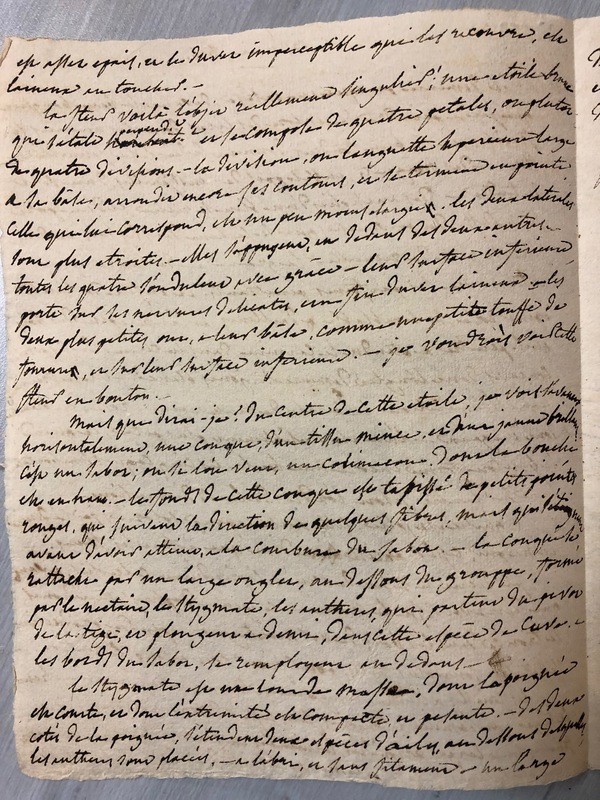 est assez epais, et le duvet imperceptible qui les recouvre, est
laineux au toucher. —
la fleur voilà l'objet réellement singulier! une etoile brune
qui s'étale perpendic et se compose de quatre petales, ou plutot
de quatre divisions — la division, ou languette superieure large
a sa bâse, arrondie encore ses contours, et se termine en pointe
celle qui lui correspond, est un peu moins large. les deux laterales
sont plus etroites. — elles s'appuyent, en dedans des deux autres. —
toutes les quatre s'onduleux avec grace — leur surface inferieure
porte sur ses nervures delicates, un fin duvet laineux — les
deux plus petites ont, a leur bâse, comme une petite touffe de
fourure, et sur leur surface inferieure. — je voudrois voir cette
fleur en bouton. —
mais que dirai-je! du centre de cette etoile, je vois s'avancer
horisontalement, une conque, d'un tissu mince, et d'un jaune brillant
c'est un sabot; ou si l'on veut, un colimacon dont la bouche
est en haut. — le fond de cette conque est tapissé de petits points
rouges, qui suivent la direction de quelques fibres, mais qui
avant d'avoir atteint, a la courbure du sabot. — la conque se
rattache par un large onglet, au dessous du grouppe, formé
par le nectaire, le stygmate, les antheres, qui partent du pivot
de la tige, et plongent a demi, dans cette espèce de cuve. —
les bords du sabot, se remployent en dedans —
le stygmate est une lourde masse, dont la poignée
est courte, et dont l'extrimité est compacte, et pesante. — des deux
cotés de la poignée, s'etendent deux espèces d'ailes, au dessous desquelles
les antheres sont placées, — a l'abri, et sans filament — un large